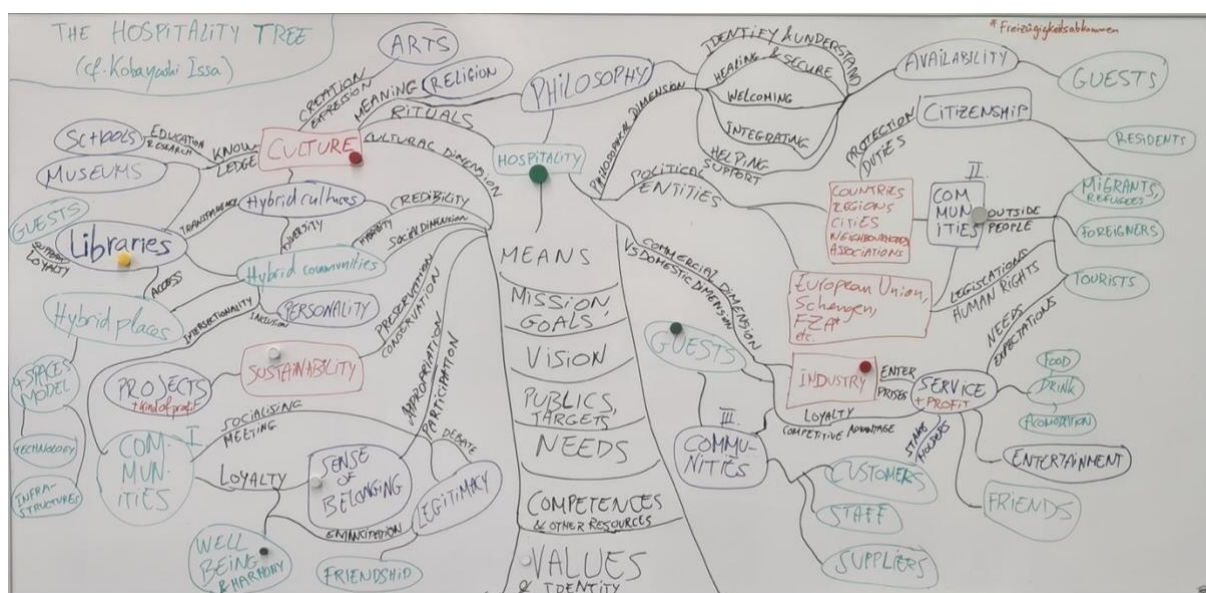 THE HOSPITALITY TREE
(cf. Kobayashi Issa)
*Freizügigkeitsabkommen
ARTS
CREATION
EXPRESSION
MEANING
RELIGION
RITUALS
PHILOSOPHY
CULTURE
CULTURAL DIMENSION
HOSPITALITY
SCHOOLS
EDUCATION
RESEARCH
KNOW
LEDGE
MUSEUMS
Hybrid cultures
CREDIBILITY
SOCIAL DIMENSION
GUESTS
SUPPORT
LOYALTY
Libraries
DIVERSITY
Hybrid communities
ACCESS
Hybrid places
INTERSECTIONALITY
INCLUSION
PERSONALITY
PRESERVATION
CONSERVATION
SUSTAINABILITY
PROJECTS
4 SPACES
MODEL
TECHNOLOGY
INFRA-
STRUCTURES
I
COM-
MUN-
ITIES
SOCIALISING
MEETING
APPROPRIATION
PARTICIPATION
DEBATE
LOYALTY
SENSE
OF
BELONGING
LEGITIMACY
EMANCIPATION
WELL
BEING
& HARMONY
FRIENDSHIP
MEANS
MISSION
GOALS
VISION
PUBLICS,
TARGETS
NEEDS
COMPETENCES
& OTHER RESOURCES
VALUES
& IDENTITY
PHILOSOPHICAL DIMENSION
IDENTIFY & UNDERSTAND
HEARING & SECURE
WELCOMING
INTEGRATING
HELPING
SUPPORT
AVAILABILITY
GUESTS
CITIZENSHIP
RESIDENTS
PROTECTION
DUTIES
POLITICAL
ENTITIES
COUNTRIES
REGIONS
CITIES
NEIGHBOURHOODS
ASSOCIATIONS
II.
COM
MUN
ITIES
OUTSIDE
PEOPLE
MIGRANTS,
REFUGEES
FOREIGNERS
TOURISTS
European Union,
Schengen,
FZA*
etc.
LEGISLATIONS
HUMAN RIGHTS
NEEDS
EXPECTATIONS
COMMERCIAL DIMENSION
VS DOMESTIC DIMENSION
GUESTS
INDUSTRY
ENTER
PRISES
SERVICE
+ PROFIT
FOOD
DRINK
ACOMODATION
LOYALTY
COMPETITIVE ADVANTAGE
STAKE
HOLDERS
ENTERTAINMENT
FRIENDS
III.
COMMU-
NITIES
CUSTOMERS
STAFF
SUPPLIERS